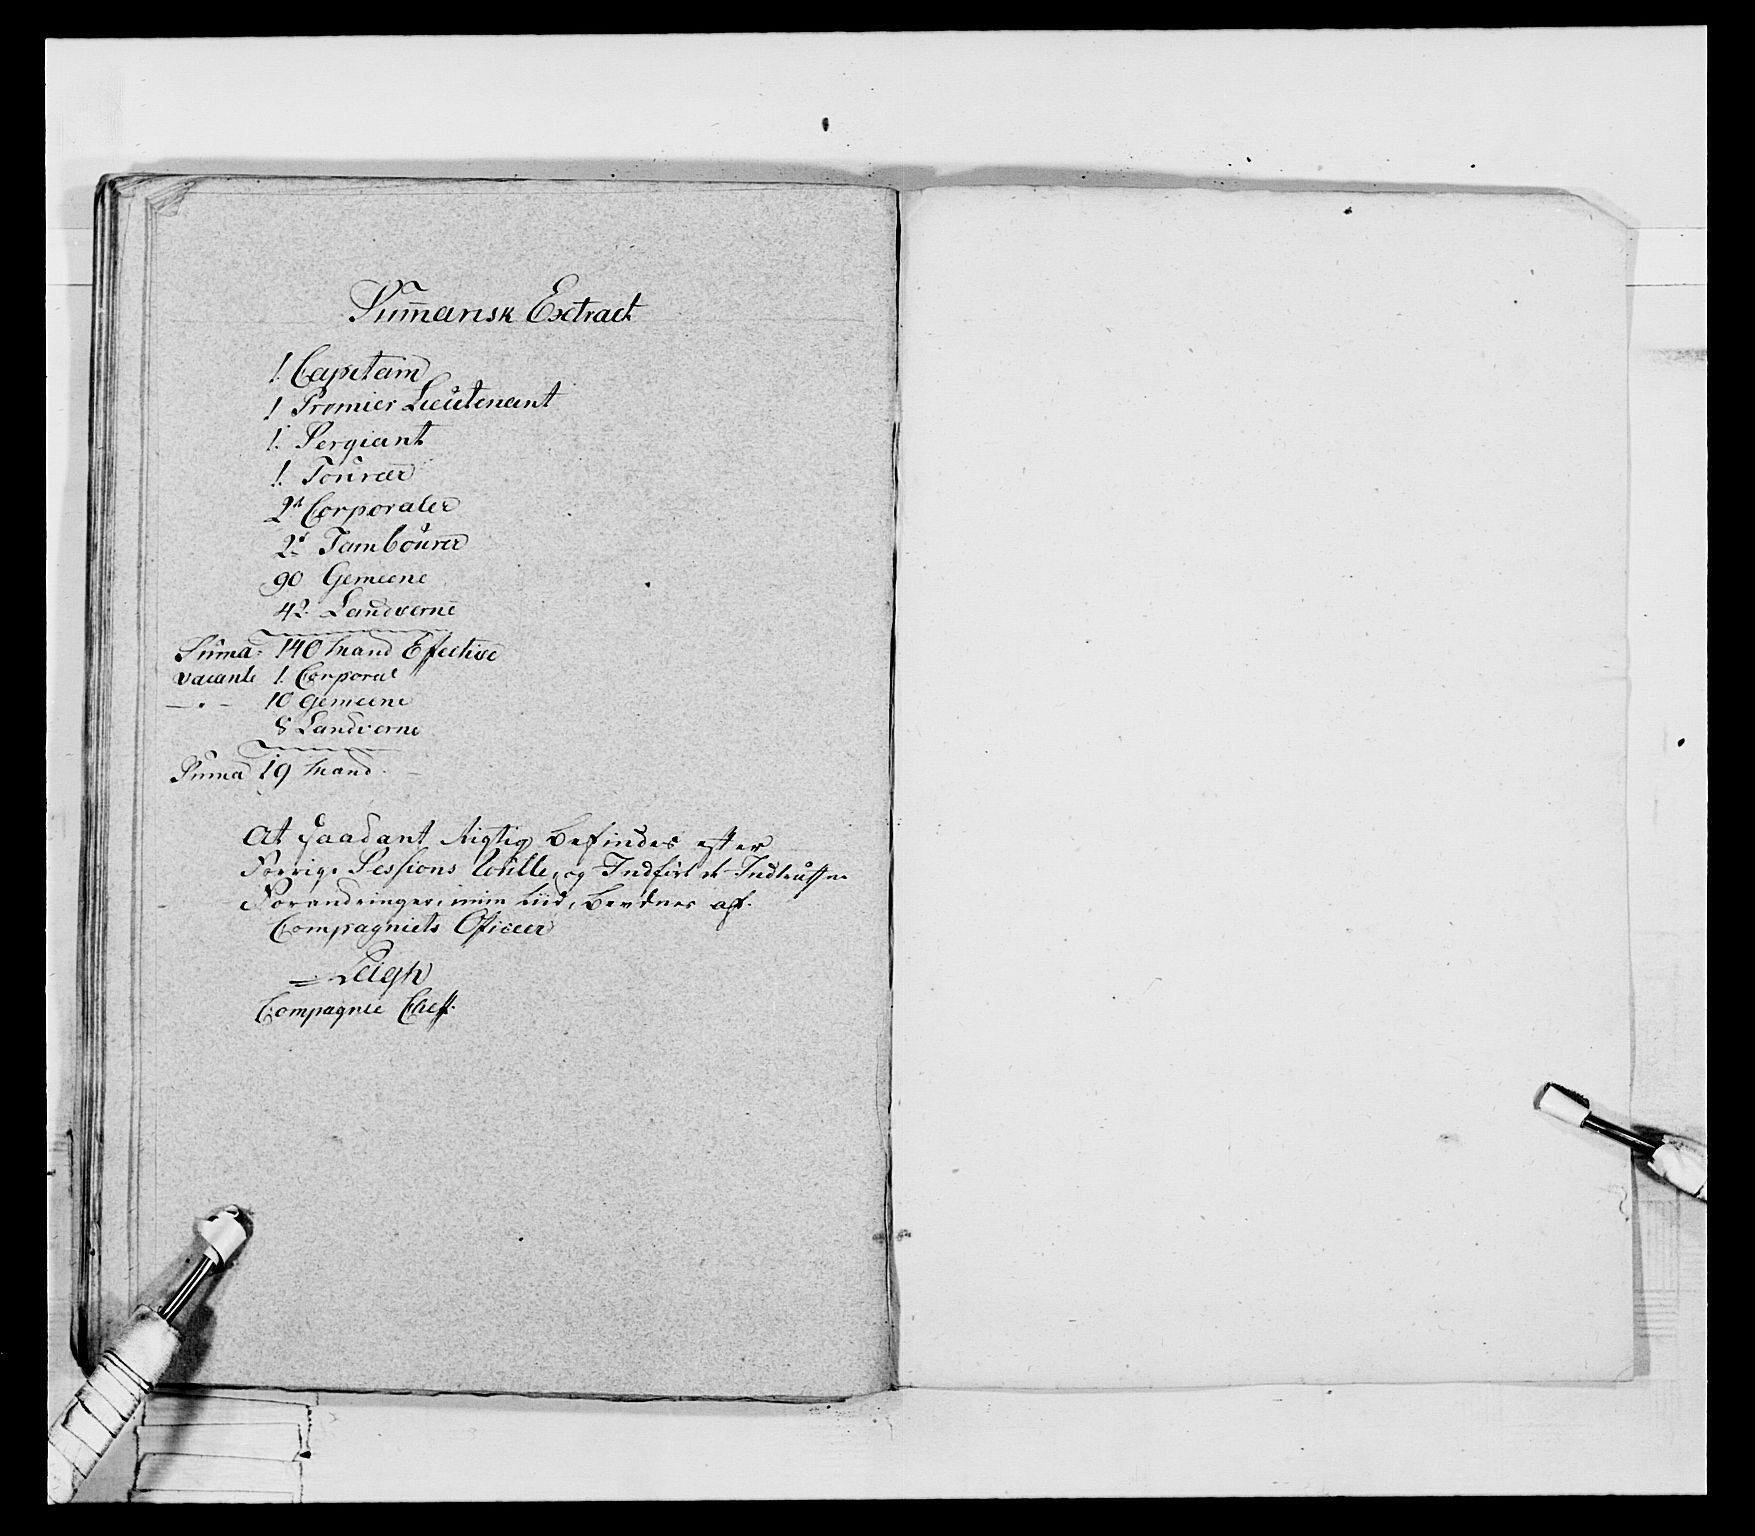 Sum̄arisk Extract
1. Capitain
1 Premier Lieutenant
1. Sergiant
1. Fourær
2de Corporaler
2de Tambourer
90 Gemeene
42. Landværne
Suma: 140 Mand Efective
Vacante 1. Corporal
— . — 10 Gemeene
8 Landværne
Suma 19 Mand.
At saadant Rigtig befindes efter
Forrige Sessions Rulle, og Indført
Forandringer, i min tiid, bevidner af
Compagniets Oficeer
Leigh
Compagnie Cheff.